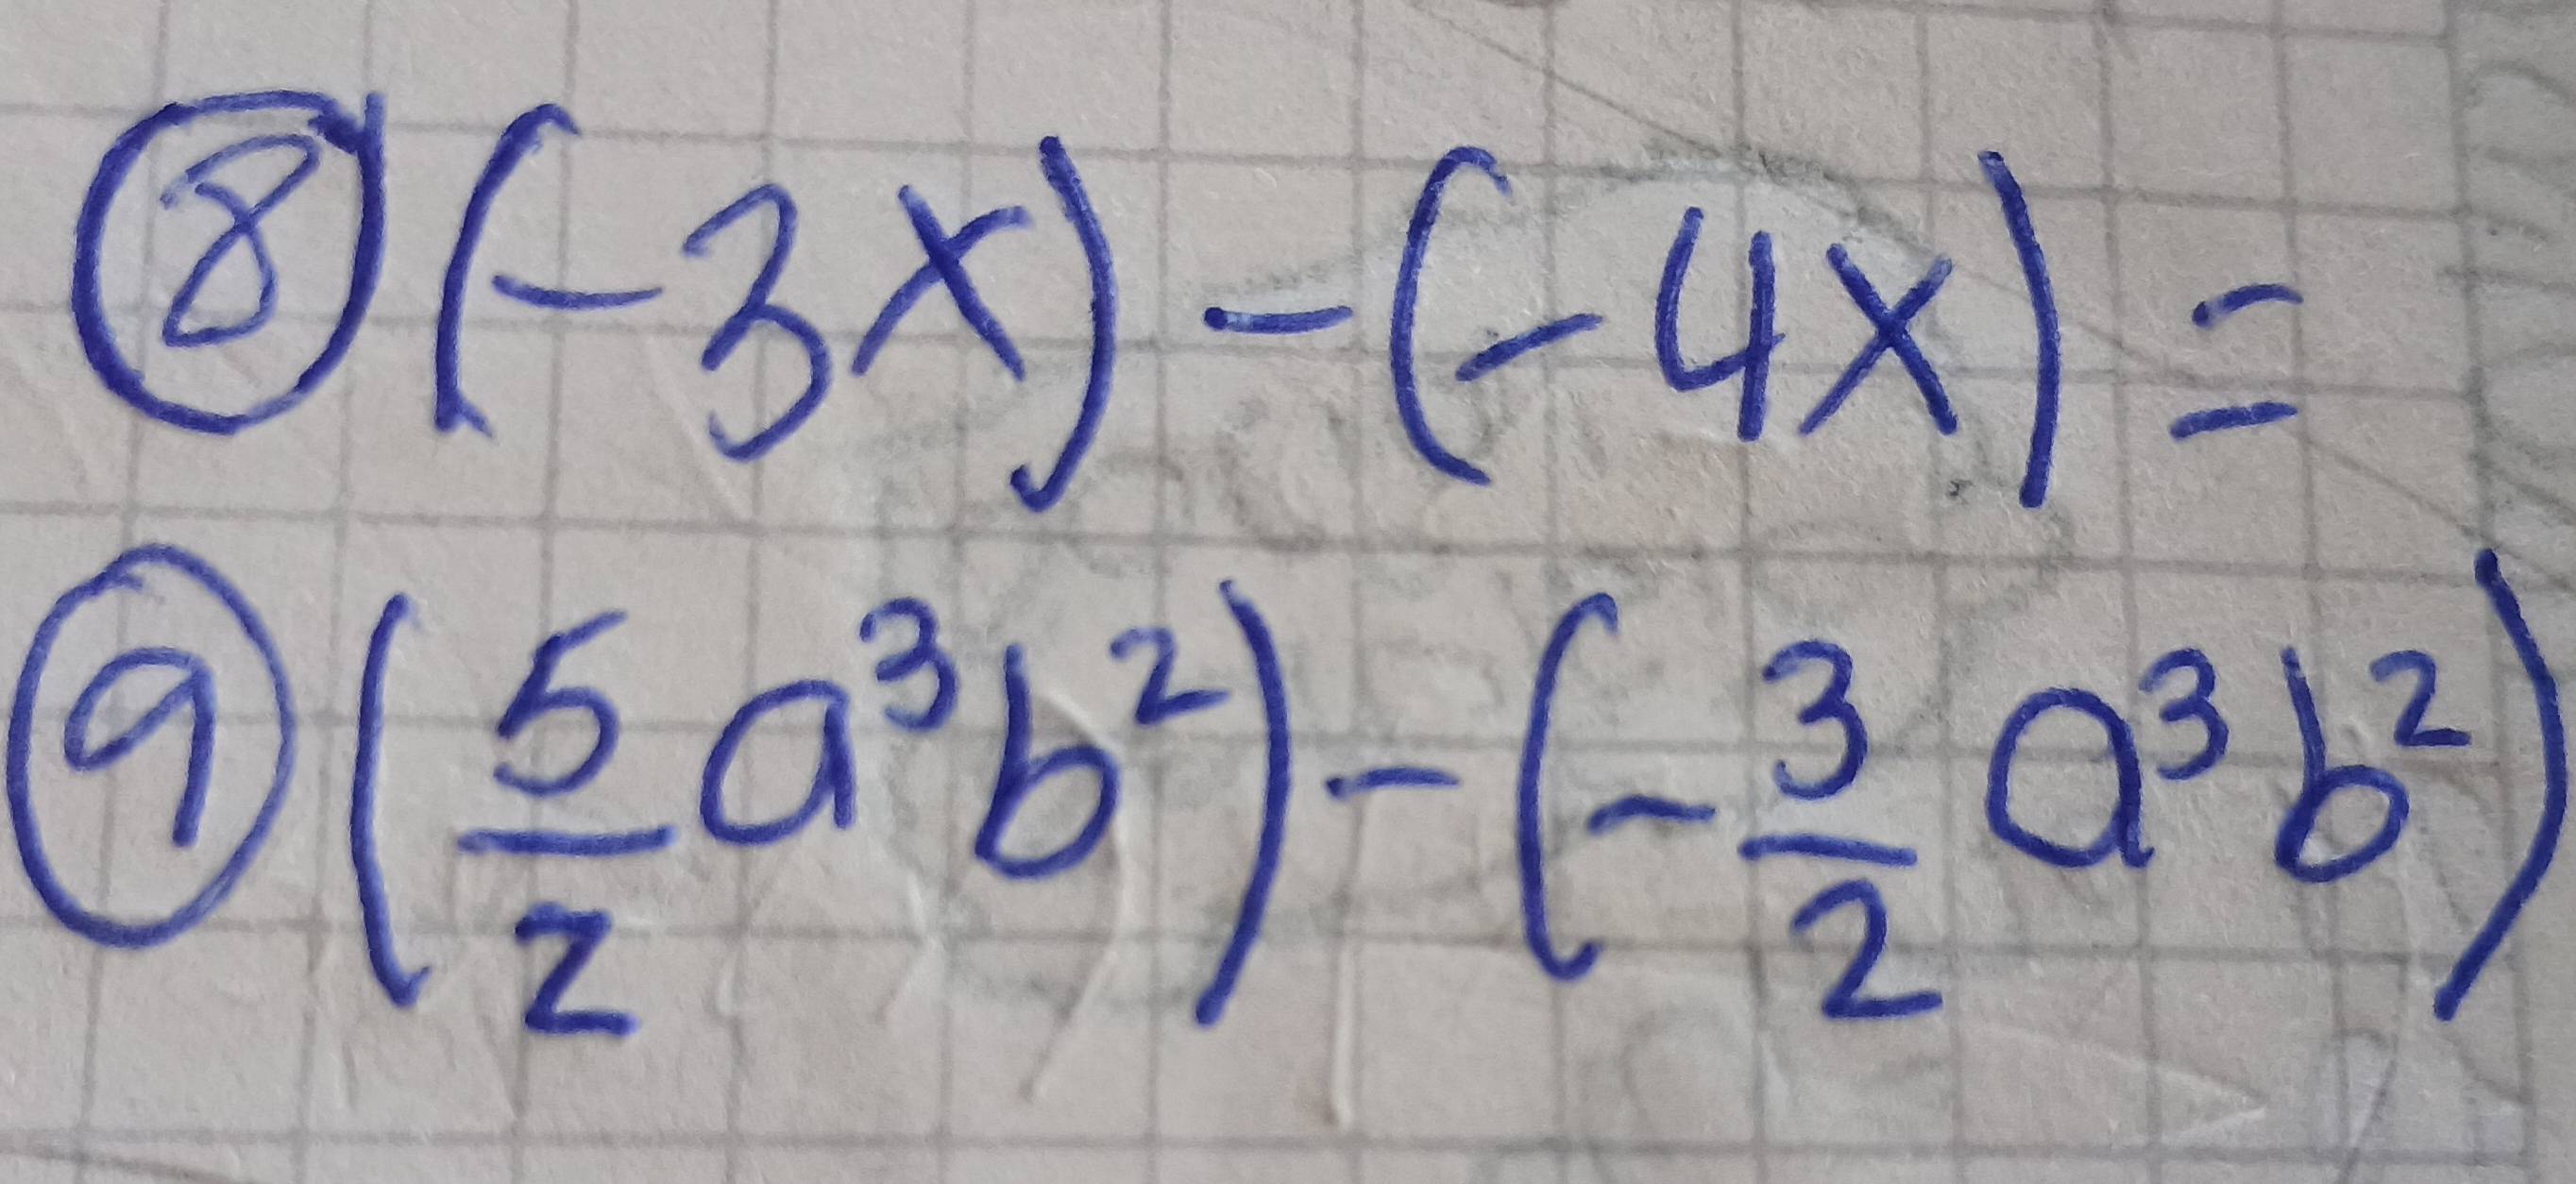 ⑧ (-3x) - (-4x) =
⑨ (5/2 a³b²) - (-3/2 a³b²)